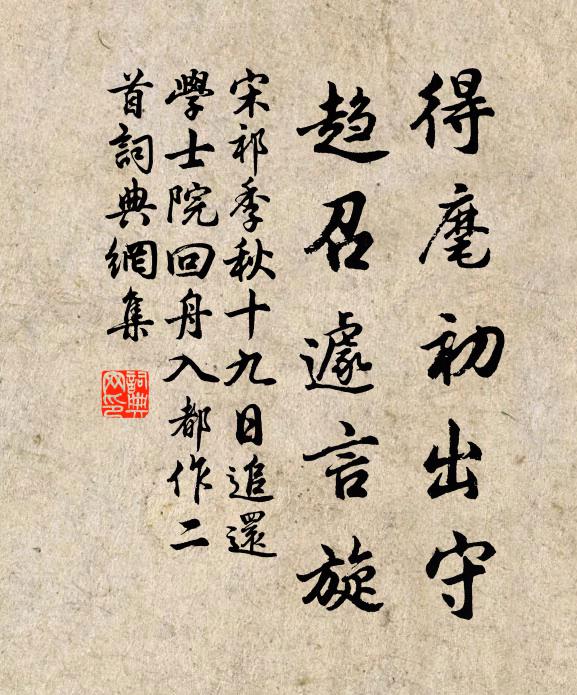 得麾初出守
趋召遽言旋
宋祁季秋十九日追還
學士院回舟入都作二
首詞典網集
詞典网印